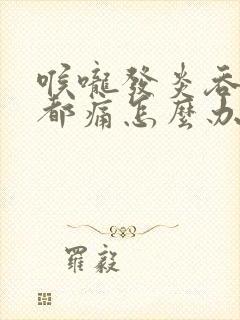 喉嚨發炎吞
都痛怎麼办
羅毅